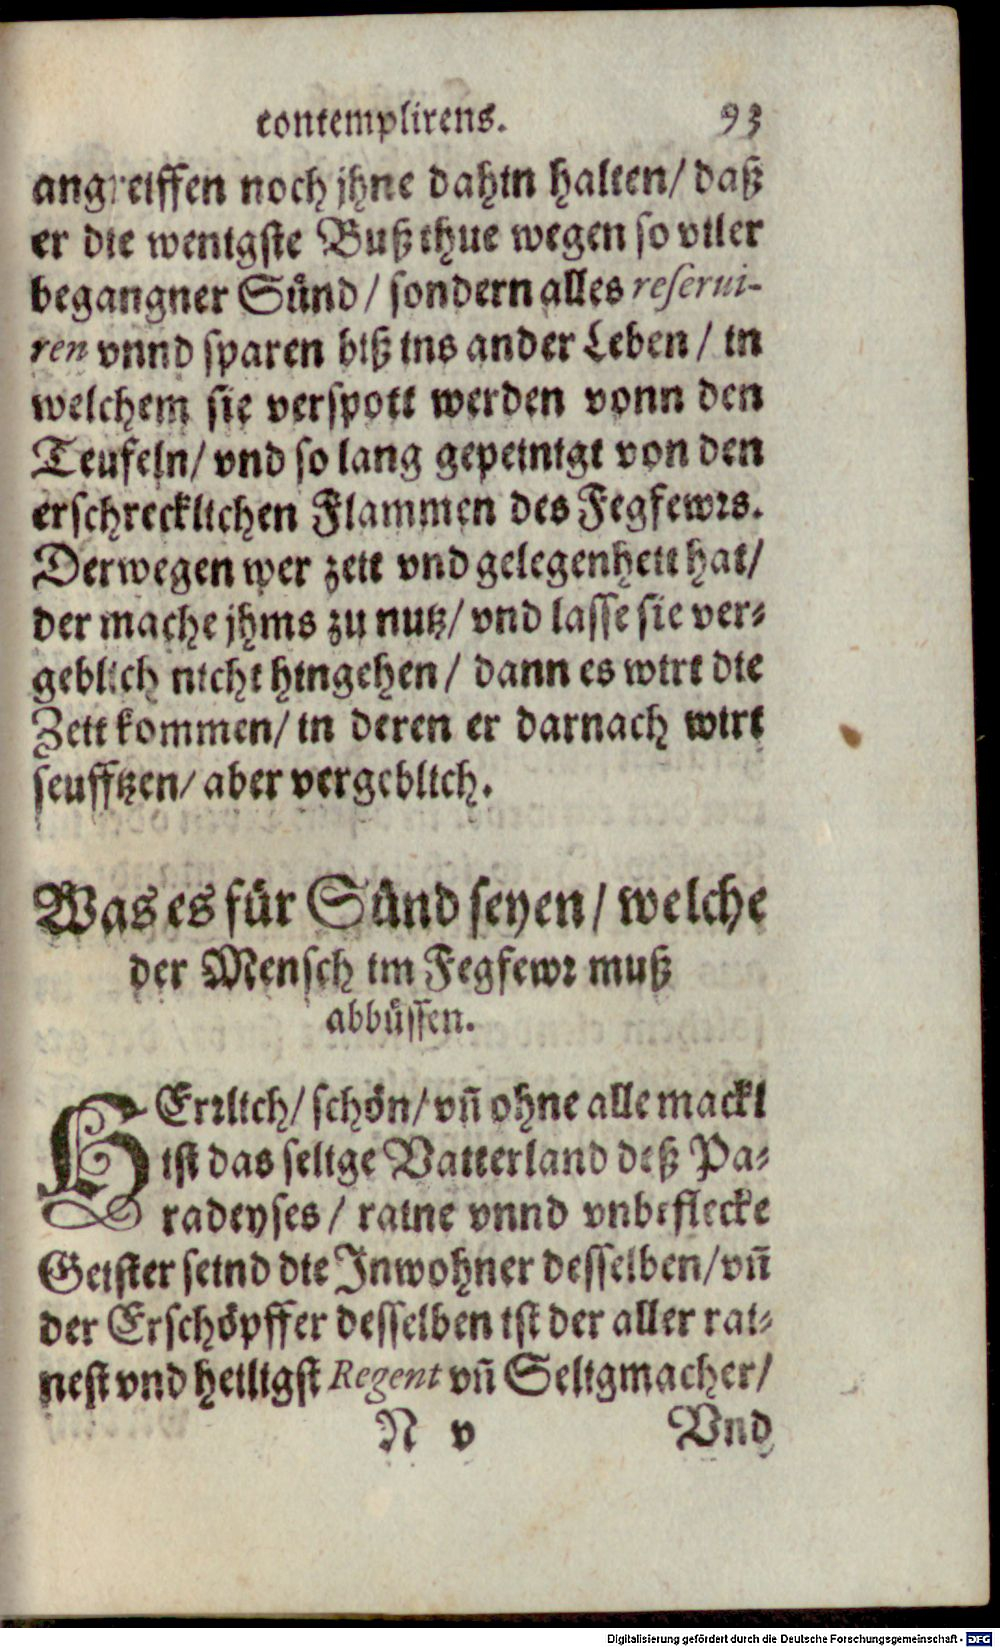 contemplirens. 93
angreiffen noch jhne dahin halten/ daß
er die wenigste Buß thue wegen so viler
begangner Sünd/ sondern alles reserui-
ren vnnd sparen biß ins ander Leben/ in
welchem sie verspott werden vonn den
Teufeln/ vnd so lang gepeinigt von den
erschrecklichen Flammen des Fegfewrs.
Derwegen wer zeit vnd gelegenheit hat/
der mache jhms zu nutz/ vnd lasse sie ver-
geblich nicht hingehen/ dann es wirt die
Zeit kommen/ in deren er darnach wirt
seufftzen/ aber vergeblich.
Was es für Sünd seyen/ welche
der Mensch im Fegfewr muß
abbüssen.
HErrlich/ schön/ vñ ohne alle mackl
ist das selige Vatterland deß Pa-
radeyses/ raine vnnd vnbeflecke
Geister seind die Inwohner desselben/ vñ
der Erschöpffer desselben ist der aller rai-
nest vnd heiligst Regent vñ Seligmacher/
N v Vnd
Digitalisierung gefördert durch die Deutsche Forschungsgemeinschaft - DFG